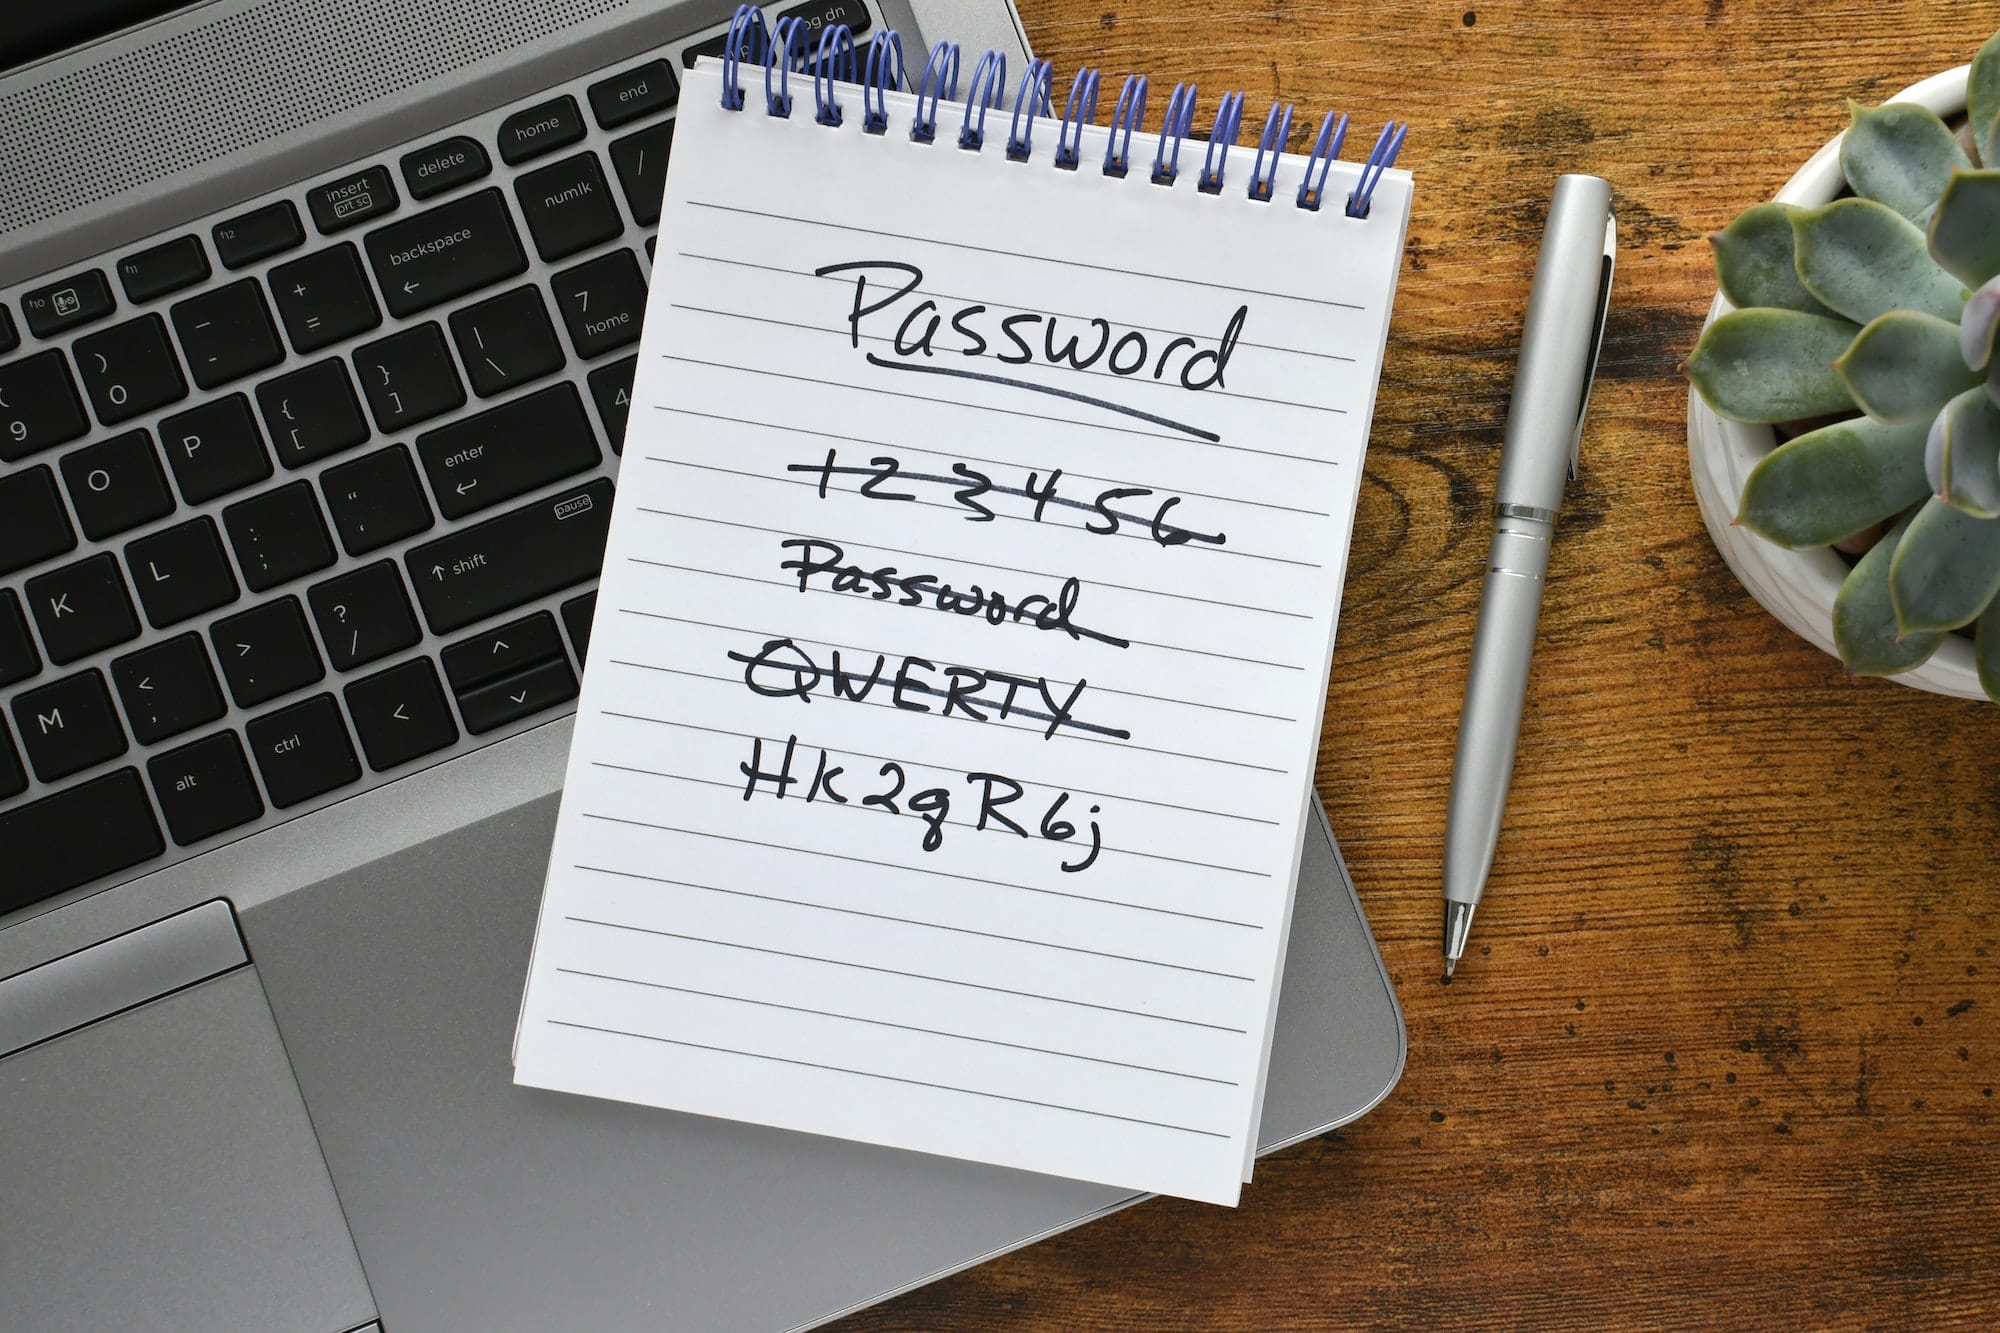 pg dn
end
home
delete
insert
prt sc
f12
f11
f10
numlk
/
backspace
←
+
=
_
-
)
0
(
9
7
home
|
\
}
]
{
[
P
O
4
enter
↵
"
'
:
;
L
K
pause
↑ shift
?
/
>
.
<
,
M
^
v
<
ctrl
alt
Password
123456
Password
QWERTY
Hk2gR6j